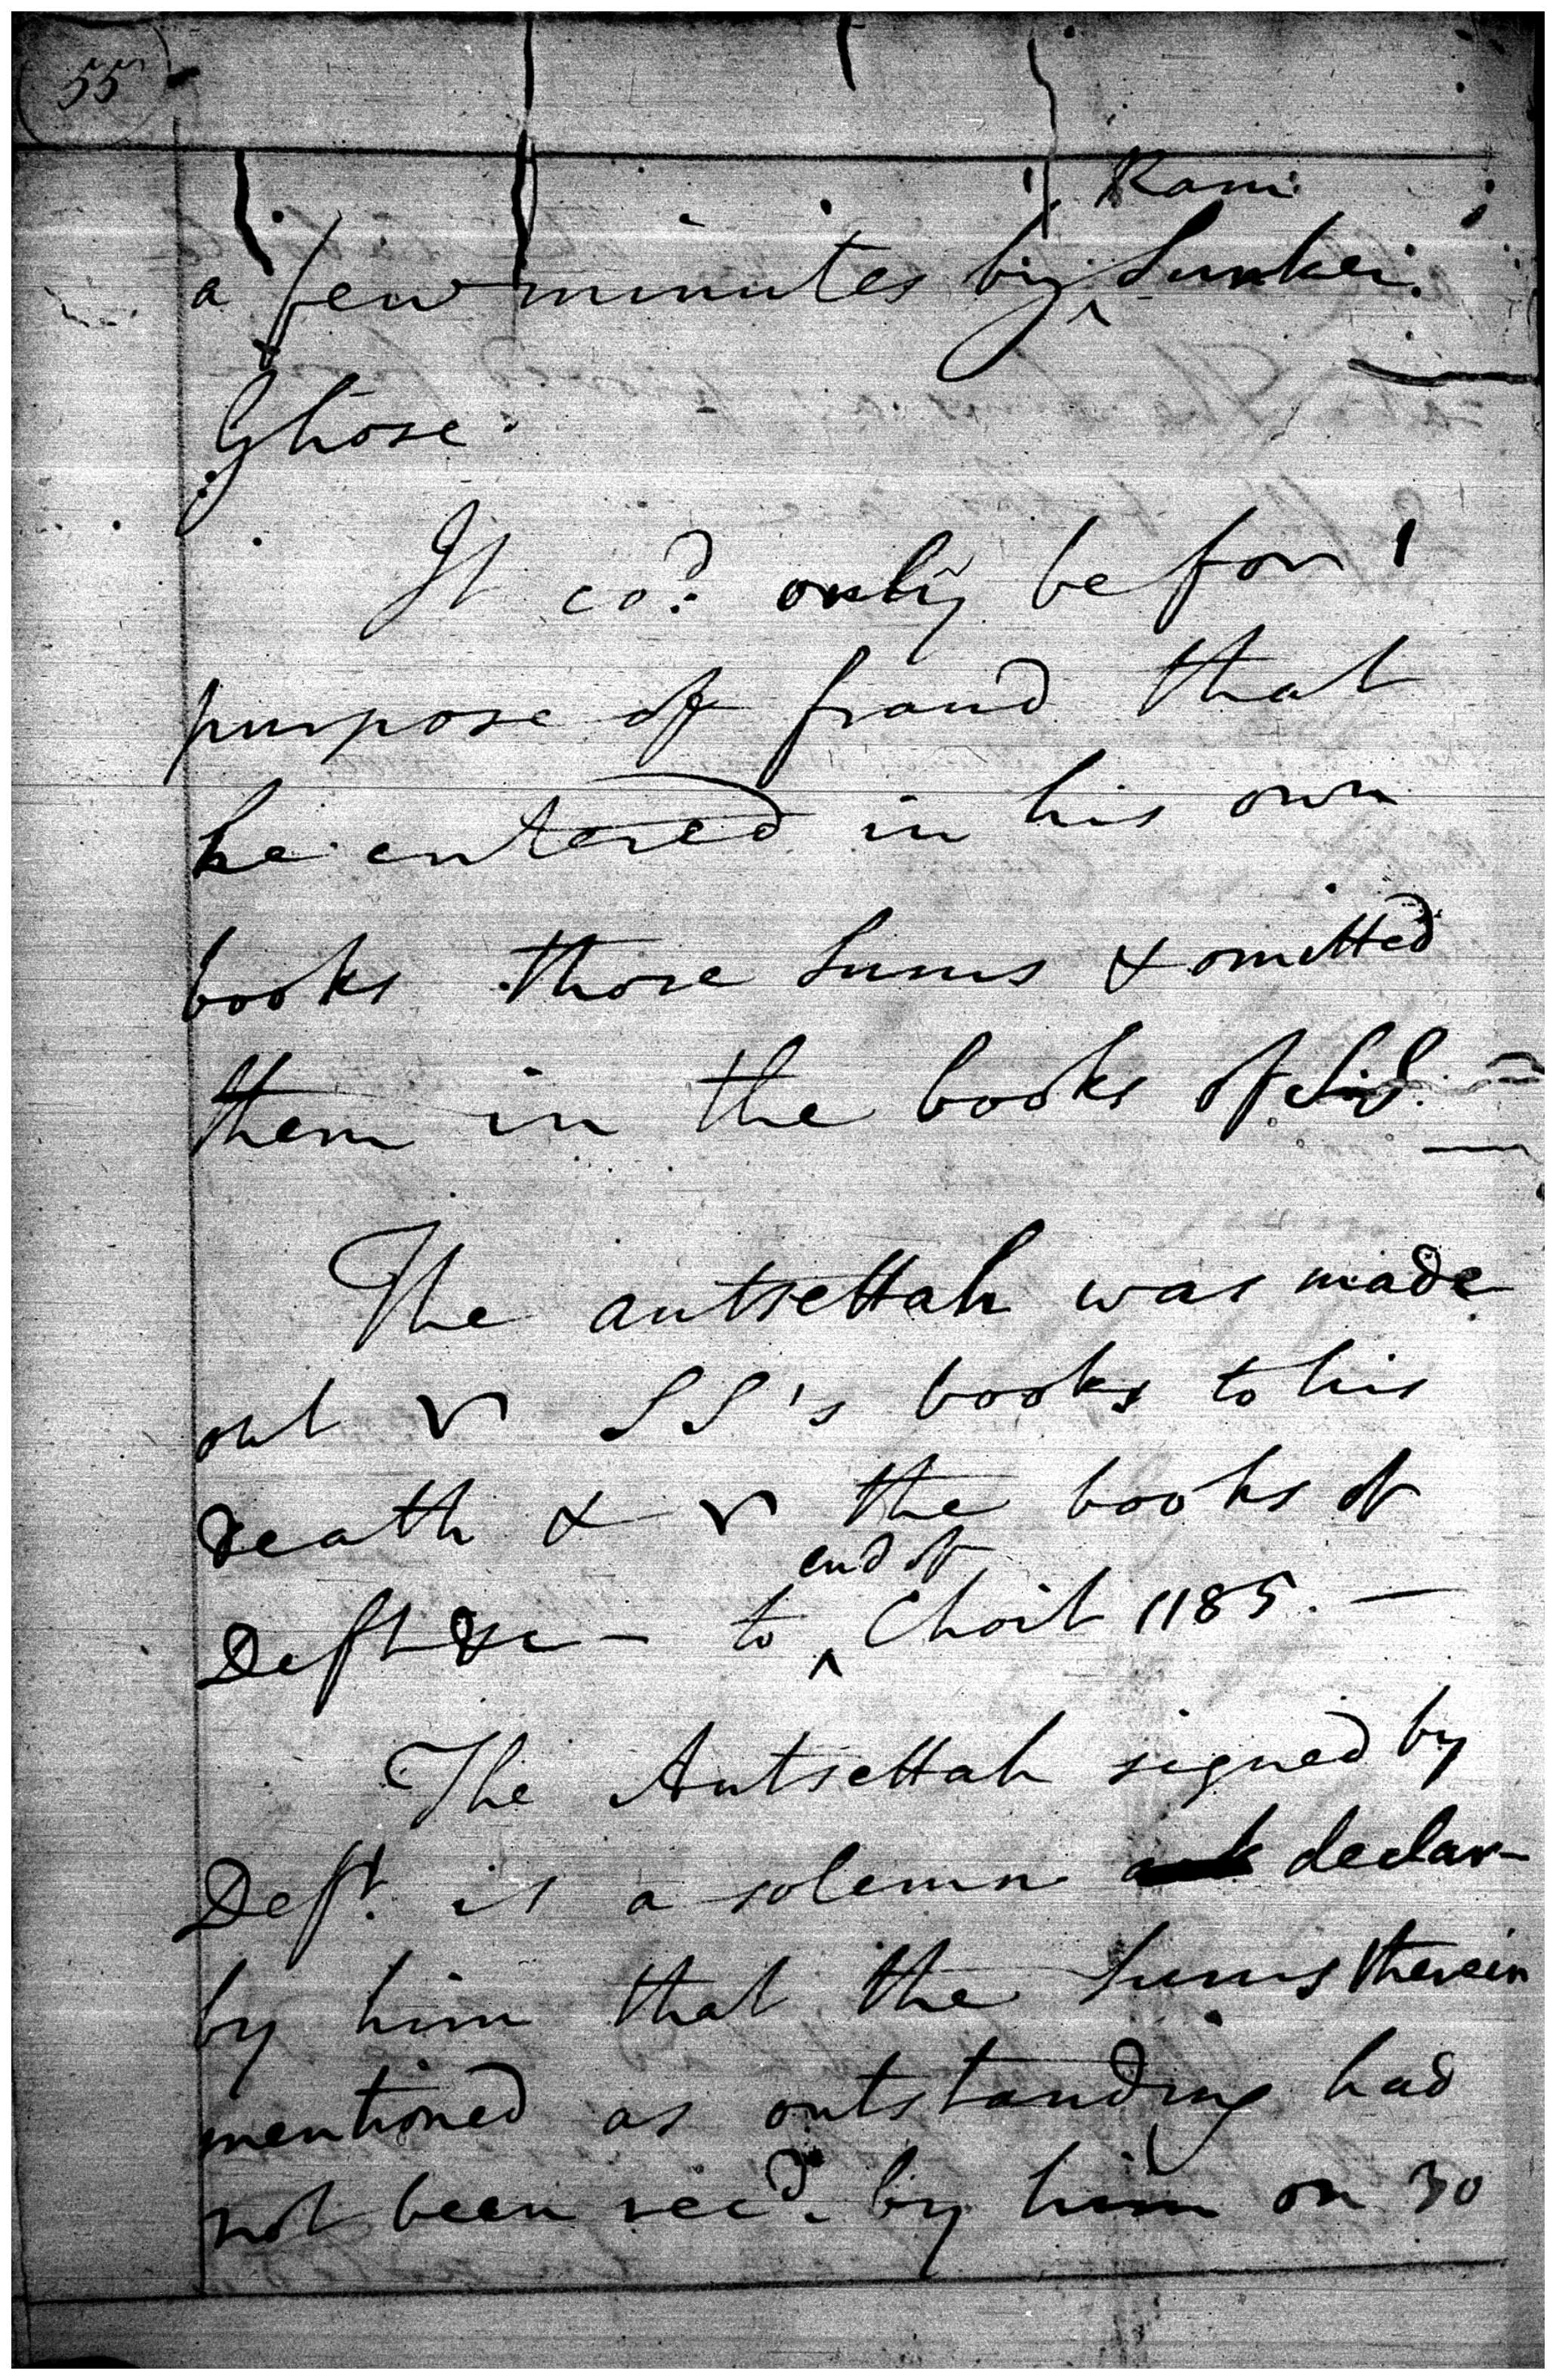 55
Ram
a few minutes by ^ Sunker
Ghose.
It co.d only be for
purpose of fraud that
he entered in his own
books those Sums & omitted
them in the books of
The autsettah was made
out SS's books to his
death & the books of
end of
Deft &c - to ^ Choit 1185. —
The Autsettah signed by
Deft. is a solemn declar-
by him that the Sums therein
mentioned as outstanding had
not been rec.d by him on 30